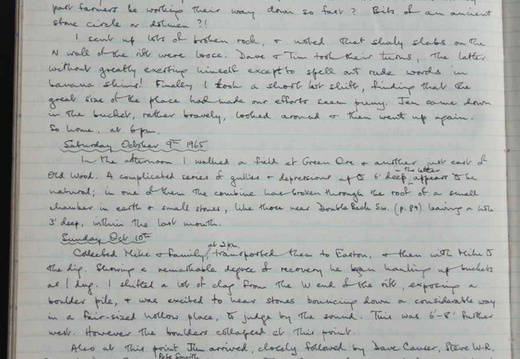 past farmers be working their way down so fast? Bits of an ancient
stone circle or dolmen?!
I sent up lots of broken rock, & noted that shaly slabs on the
N wall of the rift were loose. Dave & Tim took their turns, the latter
without greatly exerting himself except to spell out rude words in
banana skins! Finally I took a short last shift, finding that the
great size of the place had made our efforts seem puny. Jen came down
in the bucket, rather bravely, looked around & then went up again.
So home, at 6pm.
Saturday October 9th 1965
In the afternoon I walked a field at Green Ore & another just east of
Old Wood. A complicated series of gullies & depressions up to 6' deep, the latter appear to be
natural; in one of them the combine has broken through the roof of a small
chamber in earth & small stones, like those near Double Back Sw. (p. 84) leaving a hole
3' deep, within the last month.
Sunday Oct 10th
Collected Mike & family, at 2pm, transported them to Easton, & then with Mike to
the dig. Showing a remarkable degree of recovery he began hauling up buckets
as I dug. I shifted a lot of clay from the W end of the rift, exposing a
boulder pile, & was excited to hear stones bouncing down a considerable way
in a fair-sized hollow place, to judge by the sound. This was 6'-8' further
west. However the boulders collapsed at this point.
Also at this point Jim arrived, closely followed by Dave Causer, Steve W-R,
Pete Smith